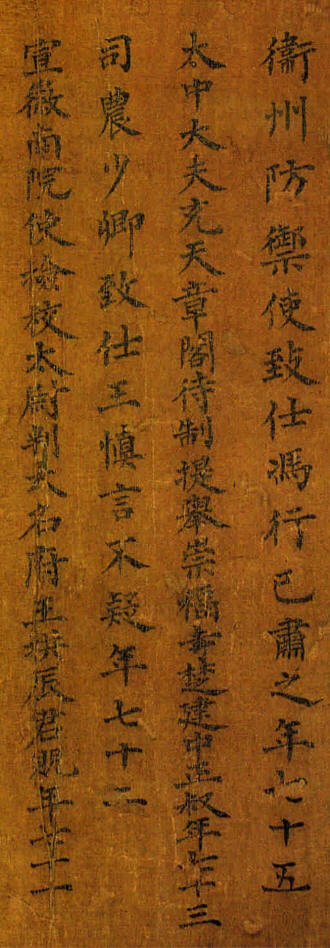 衞州防禦使致仕馮行已肅之年七十五
太中大夫充天章閣待制提舉崇福宮楚建中正叔年七十三
司農少卿致仕王慎言不疑年七十二
宣徽南院使檢校太尉判大名府王拱辰君貺年七十一